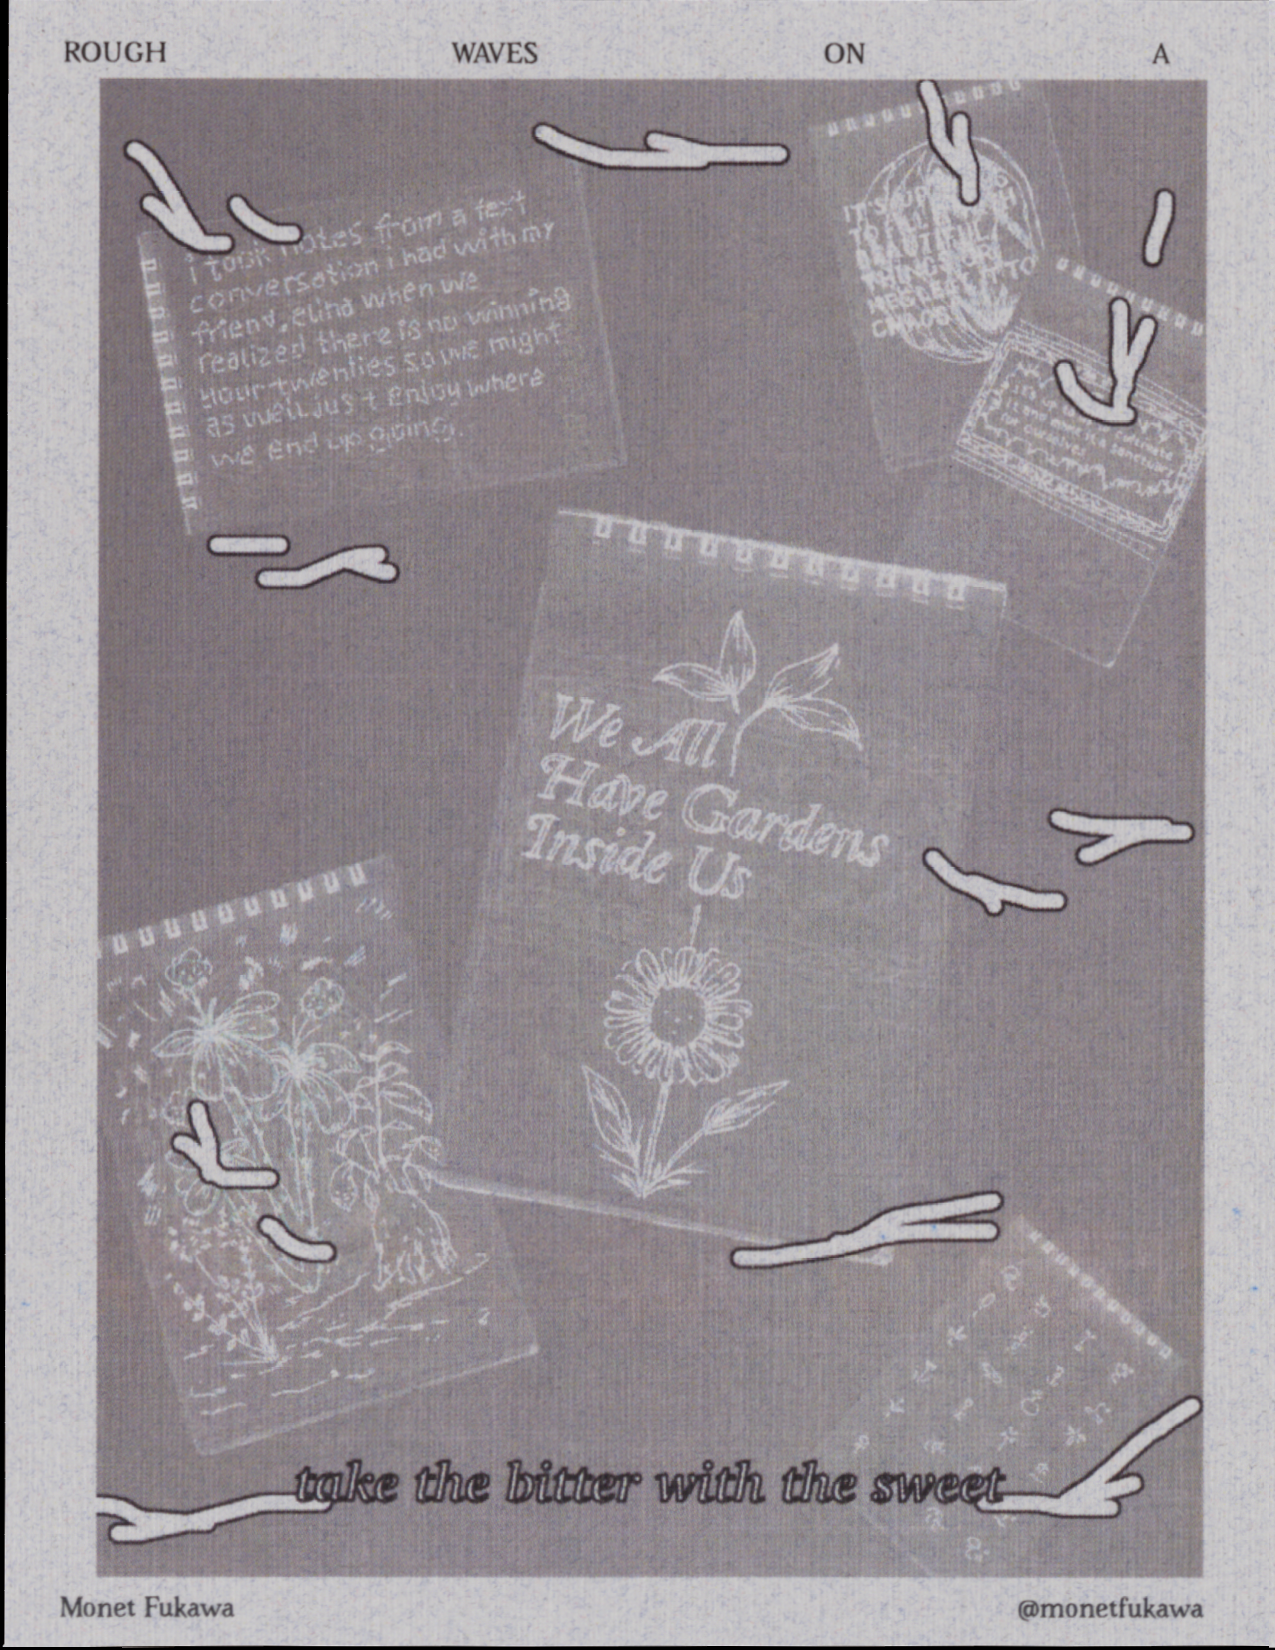 ROUGH WAVES ON A
i took notes from a text
conversation i had with my
friend, elind when we
realized there is no winning
your twenties so we might
as well just enjoy where
we end up going.
IT'S
TO
BEAUTIFUL
THINGS OR
TO
CHAOS
We All
Have Gardens
Inside Us
take the bitter with the sweet
Monet Fukawa
@monetfukawa